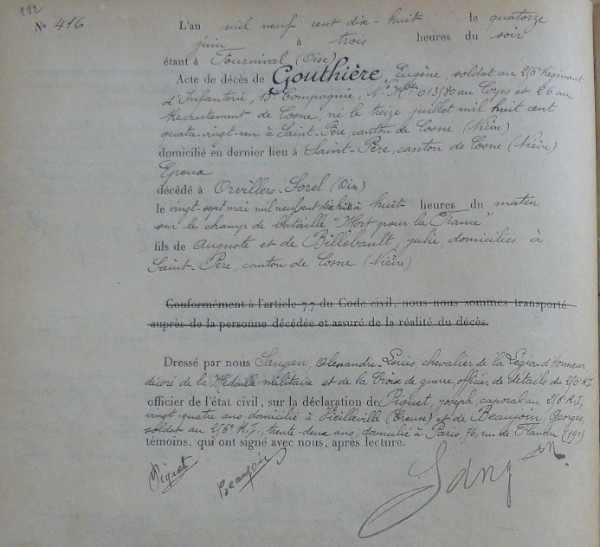 112
No 416
L'an mil neuf cent dix-huit le quatorze
juin à trois heures du soir
étant à Fournival (Oise)
Acte de décès de Gouthière, Eugène, soldat au Régiment
d'Infanterie, Compagnie, au Corps et 86 au
Recrutement de Cosne, né le treize juillet mil huit cent
quatre-vingt-un à Saint-Père canton de Cosne (Nièvre)
domicilié en dernier lieu à Saint-Père, canton de Cosne (Nièvre)
Epoux
décédé à Orvillers-Sorel (Oise)
le vingt sept mai mil neuf cent dix huit à huit heures du matin
sur le champ de bataille "Mort pour la France"
fils de Auguste et de Billebault, julie, domiciliés à
Saint-Père, canton de Cosne (Nièvre)
Conformément à l'article 77 du Code civil, nous nous sommes transporté
auprès de la personne décédée et assuré de la réalité du décès.
Dressé par nous Alexandre Louis, chevalier de la Légion d'Honneur
décoré de la Médaille militaire et de la Croix de guerre, officier de détails du R.I.
officier de l'état civil, sur la déclaration de Piquet, joseph, caporal au R.I.
vingt-quatre ans domicilié à Vieilleville (Creuse) et de Beaujoin Georges,
soldat au R.I., trente-deux ans, domicilié à Paris, 76, rue de Flandre (19e)
témoins, qui ont signé avec nous, après lecture.
Piquet
Beaujoin